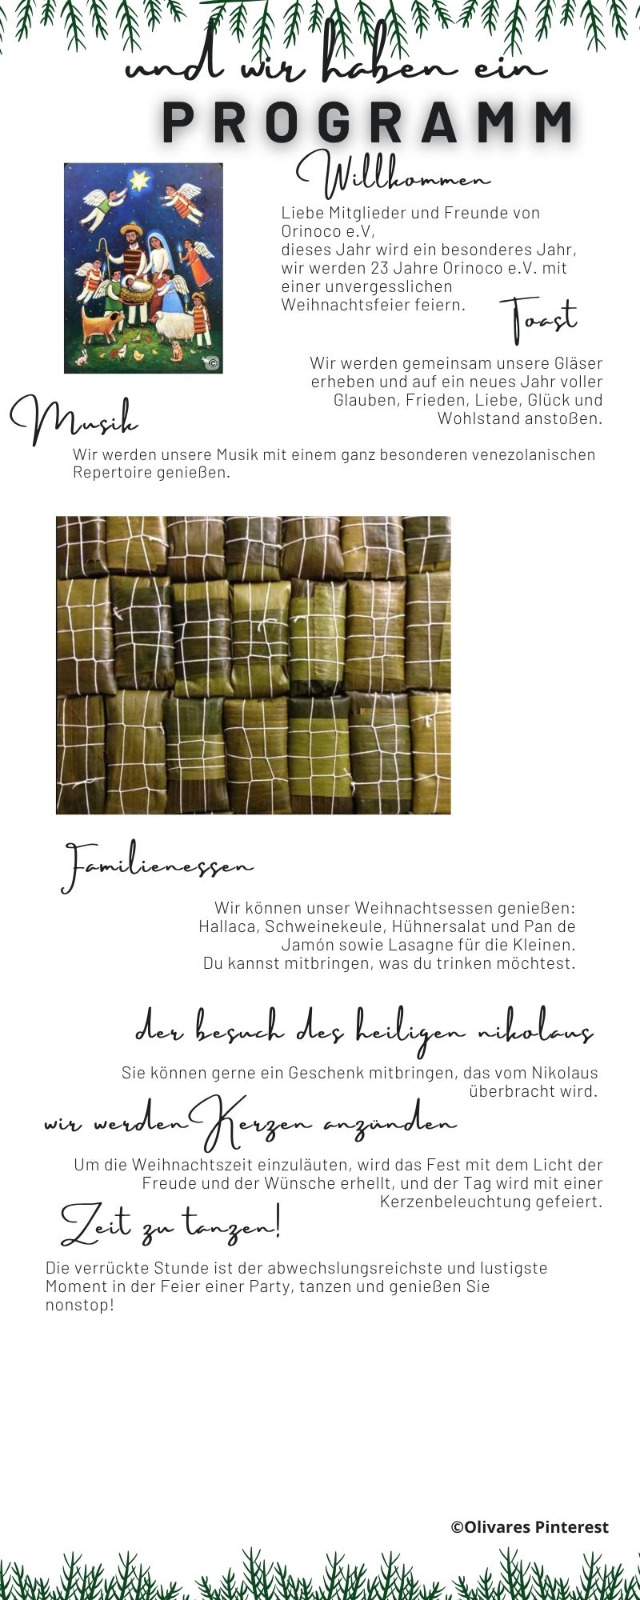 und wir haben ein
PROGRAMM
Willkommen
Liebe Mitglieder und Freunde von
Orinoco e.V,
dieses Jahr wird ein besonderes Jahr,
wir werden 23 Jahre Orinoco e.V. mit
einer unvergesslichen
Weihnachtsfeier feiern.
Toast
Wir werden gemeinsam unsere Gläser
erheben und auf ein neues Jahr voller
Glauben, Frieden, Liebe, Glück und
Wohlstand anstoßen.
Musik
Wir werden unsere Musik mit einem ganz besonderen venezolanischen
Repertoire genießen.
Familienessen
Wir können unser Weihnachtsessen genießen:
Hallaca, Schweinekeule, Hühnersalat und Pan de
Jamón sowie Lasagne für die Kleinen.
Du kannst mitbringen, was du trinken möchtest.
der besuch des heiligen nikolaus
Sie können gerne ein Geschenk mitbringen, das vom Nikolaus
überbracht wird.
wir werden Kerzen anzünden
Um die Weihnachtszeit einzuläuten, wird das Fest mit dem Licht der
Freude und der Wünsche erhellt, und der Tag wird mit einer
Kerzenbeleuchtung gefeiert.
Zeit zu tanzen!
Die verrückte Stunde ist der abwechslungsreichste und lustigste
Moment in der Feier einer Party, tanzen und genießen Sie
nonstop!
©Olivares Pinterest